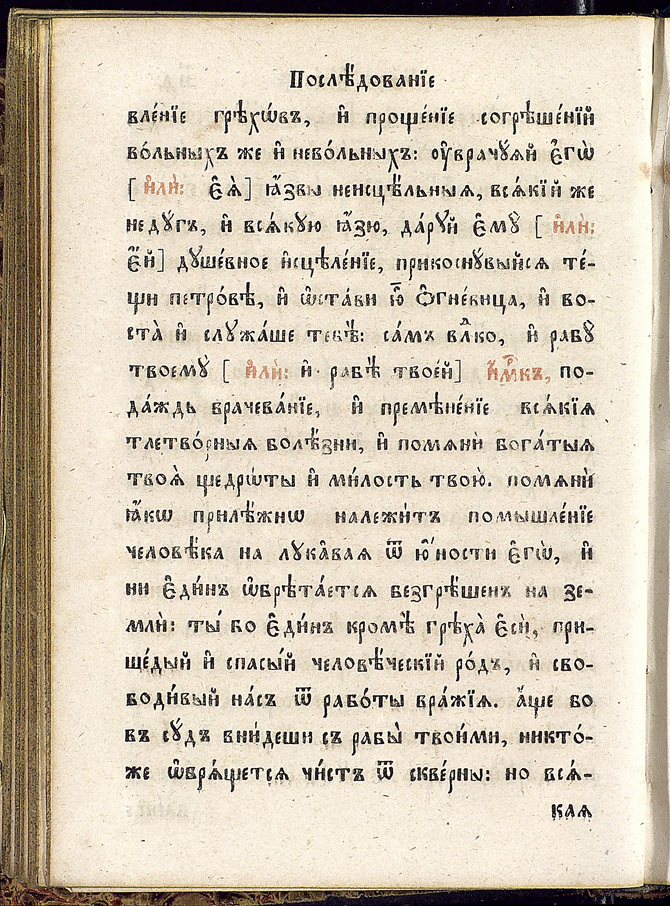 Послѣ́дованїе
вле́нїе грѣхѡ́въ, и҆ проще́нїе согрѣше́нїй
во́льныхъ же и҆ нево́льныхъ: ᲂу҆врачꙋ́ѧй є҆го̀
[ и҆лѝ: є҆ѧ̀] ꙗ҆́звы неисцѣ́льныѧ, всѧ́кїй же
недꙋ́гъ, и҆ всѧ́кꙋю ꙗ҆́зю, да́рꙋй є҆мꙋ̀ [ и҆лѝ:
є҆́й] дꙋше́вное и҆сцѣле́нїе, прикоснꙋ́выйсѧ те́-
щи петро́вѣ, и҆ ѡ҆ста́ви ю҆̀ ѻ҆гне́вица, и҆ во-
ста̀ и҆ слꙋжа́ше тебѣ̀: са́мъ влⷣко, и҆ рабꙋ̀
твоемꙋ̀ [ и҆лѝ: и҆ рабѣ̀ твое́й] и҆́мⷬкъ, по-
да́ждь врачева́нїе, и҆ премѣне́нїе всѧ́кїѧ
тлетво́рныѧ болѣ́зни, и҆ помѧнѝ бога́тыѧ
твоѧ̀ щедрѡ́ты и҆ ми́лость твою̀. помѧнѝ
ꙗ҆́кѡ прилѣ́жнѡ належи́тъ помышле́нїе
человѣ́ка на лꙋка́ваѧ ѿ ю҆́ности є҆гѡ̀, и҆
ни є҆ди́нъ ѡ҆брѣта́етсѧ безгрѣ́шенъ на зе-
млѝ: ты́ бо є҆ди́нъ кромѣ̀ грѣха̀ є҆сѝ, при-
ше́дый и҆ спасы́й человѣ́ческїй ро́дъ, и҆ сво-
боди́вый на́съ ѿ рабо́ты вра́жїѧ. а҆́ще бо
въ сꙋ́дъ вни́деши съ рабы̀ твои́ми, никто́-
же ѡ҆брѧ́щетсѧ чи́стъ ѿ скве́рны: но всѧ́-
каѧ